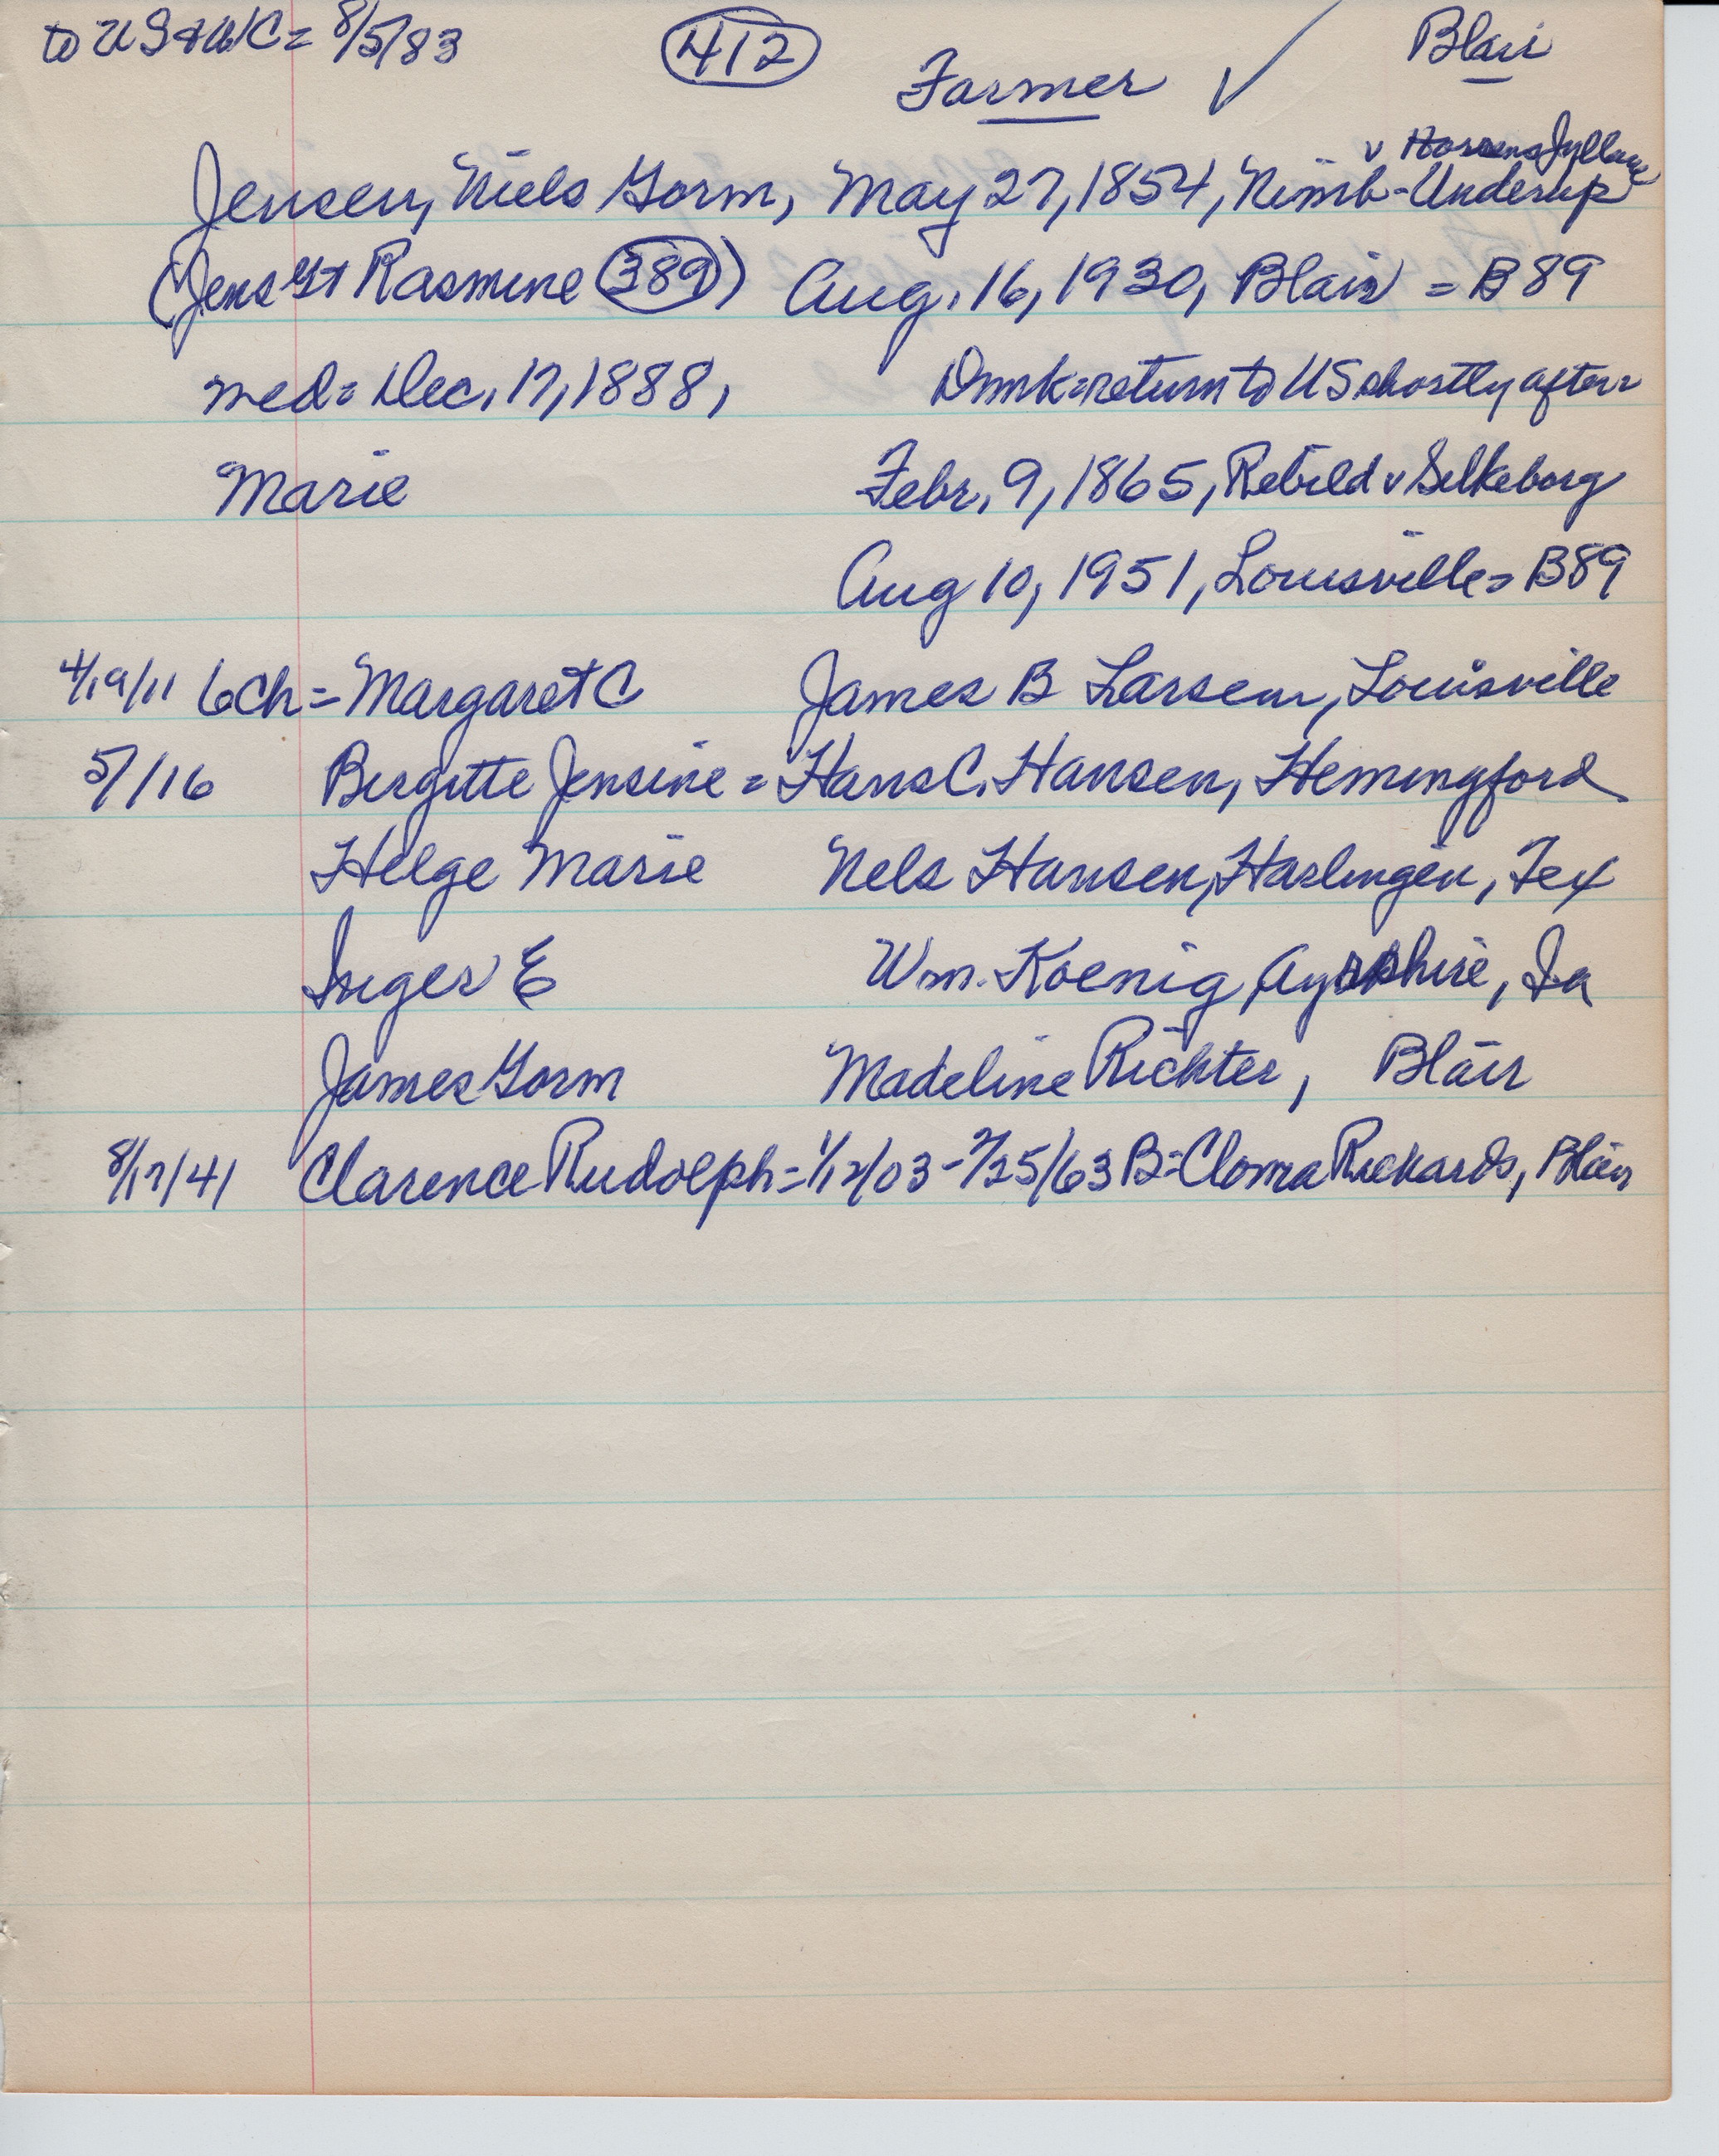 to US & WC = 8/5/83 412 Blair
Farmer ✓
v Horsens Jylland
Jensen, Niels Gorm, May 27, 1854, Nimb-Underup
(Jens G + Rasmine 389) Aug. 16, 1930, Blair = B89
med = Dec. 17, 1888, Dnmk = return to US shortly after =
Marie Febr. 9, 1865, Rebild v Silkeborg
Aug 10, 1951, Louisville = B89
4/19/11 6 Ch = Margaret C James B Larsen, Louisville
5/1/16 Birgitte Jensine = Hans C. Hansen, Hemingford
Helge Marie Nels Hansen, Harlingen, Tex
Inger E Wm. Koenig, Ayrshire, Ia
James Gorm Madeline Richter, Blair
8/17/41 Clarence Rudolph = 1/12/03 - 7/25/63 B = Cloma Rickards, Blair